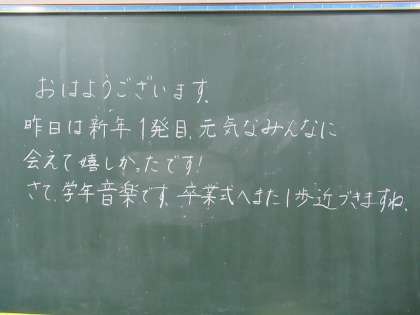 おはようございます。
昨日は新年1発目、元気なみんなに
会えて嬉しかったです!
さて、学年音楽です。卒業式へまた1歩近づきますね。